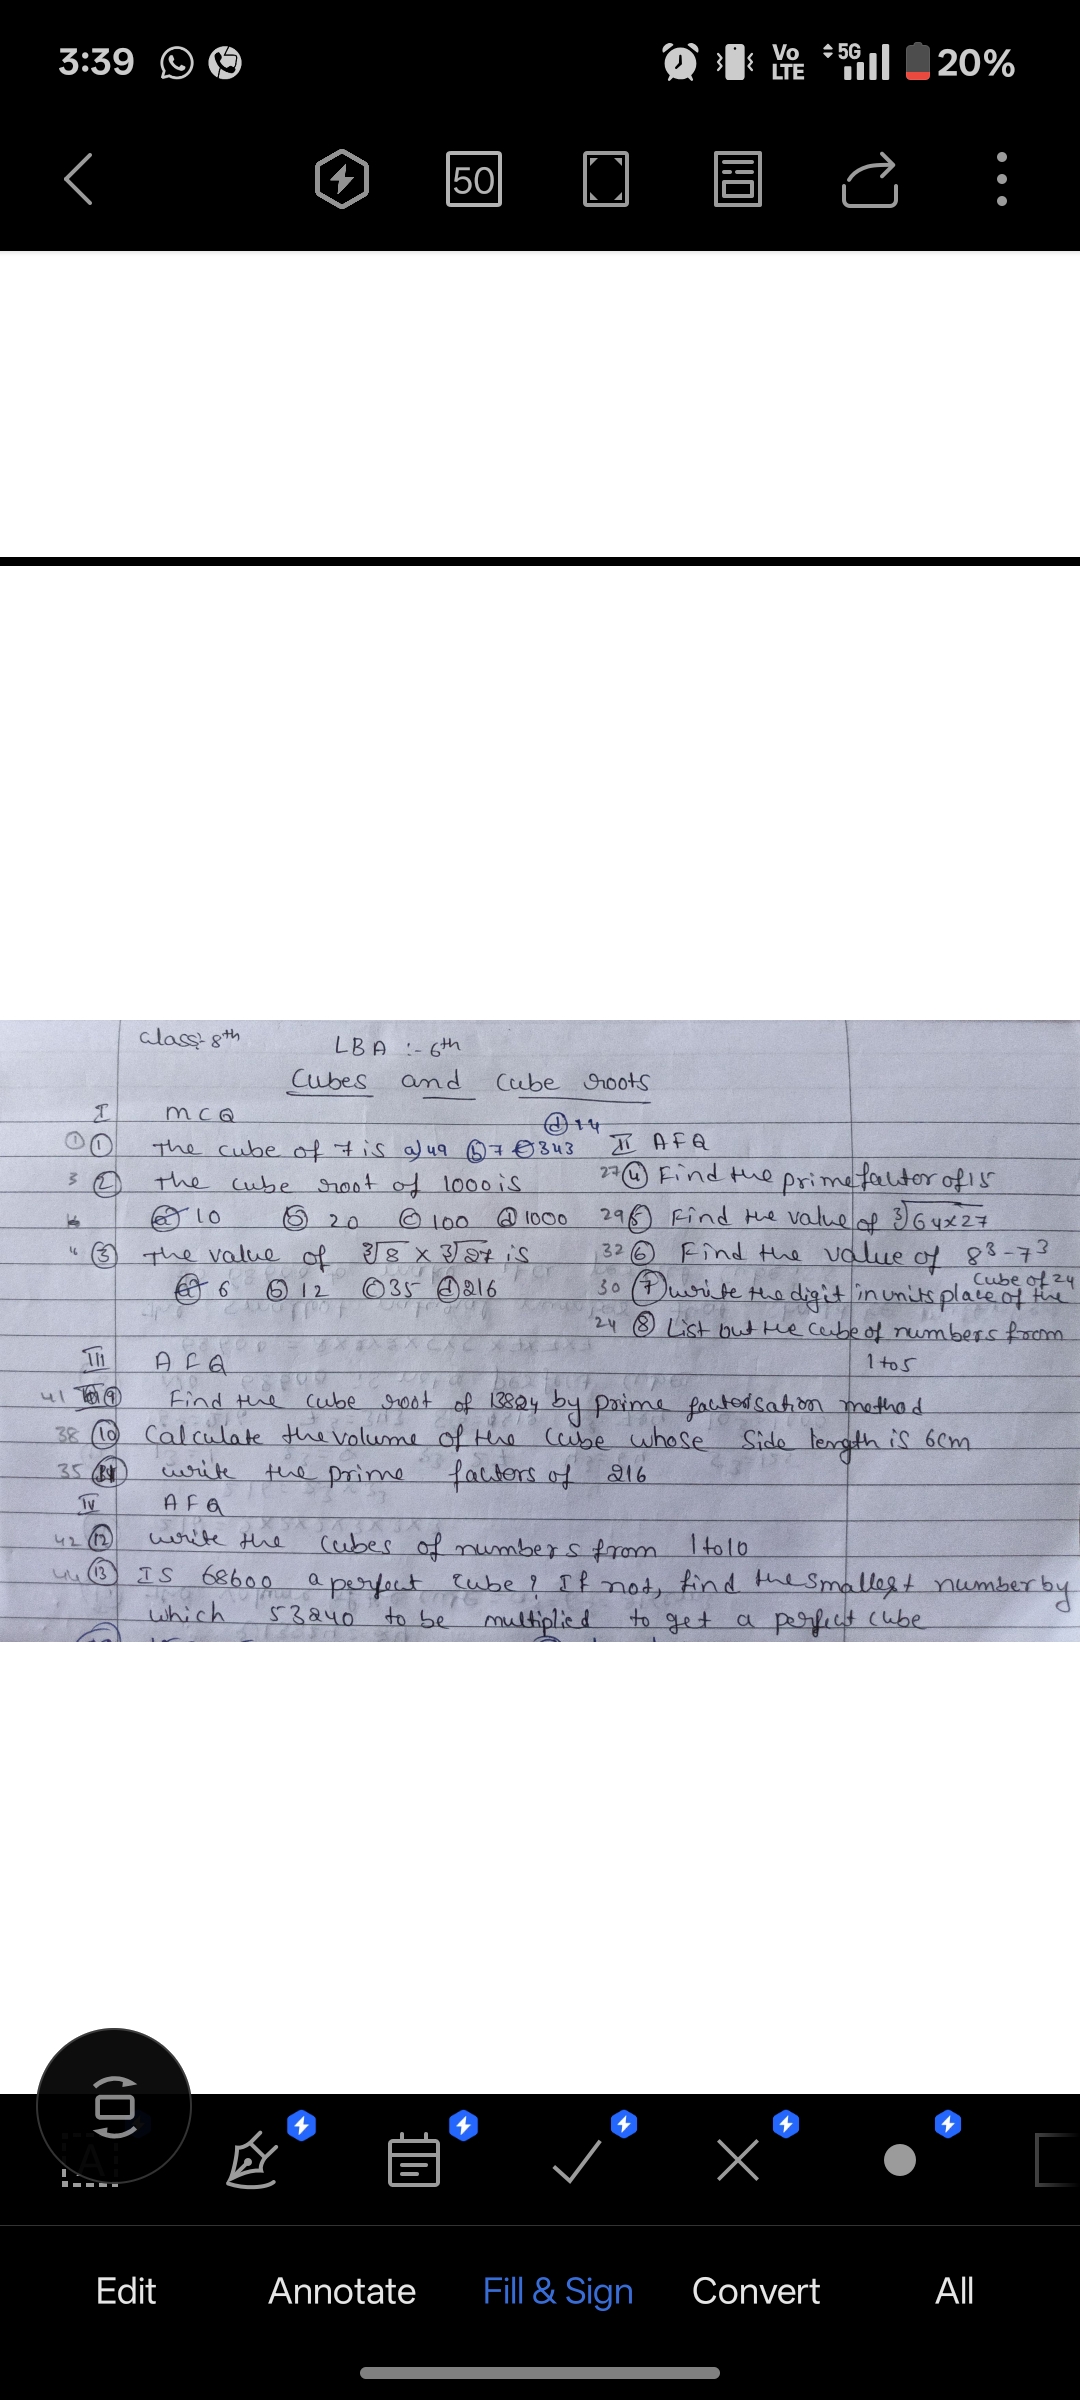 3:39
Vo LTE 5G 20%
50
Class:- 8th
LBA :- 6th
Cubes and Cube roots
I MCQ
① ① The cube of 7 is a) 49 ⓑ 7 ⓒ 343 ⓓ 14
3 ② The cube root of 1000 is
ⓐ 10 ⓑ 20 ⓒ 100 ⓓ 1000
③ The value of ∛8 × ∛27 is
ⓐ 6 ⓑ 12 ⓒ 35 ⓓ 216
II AFQ
27 ④ Find the prime factor of 15
29 ⑤ Find the value of ∛64x27
32 ⑥ Find the value of 8³-7³
30 ⑦ write the digit in units place of the cube of 24
24 ⑧ List out the cube of numbers from
1 to 5
III AFQ
41 ⑨ Find the cube root of 13824 by prime factorisation method
38 ⑩ Calculate the volume of the cube whose side length is 6cm
35 ⑪ write the prime factors of 216
IV AFQ
42 ⑫ write the cubes of numbers from 1 to 10
44 ⑬ IS 68600 a perfect cube? If not, find the smallest number by
which 53240 to be multiplied to get a perfect cube
Edit Annotate Fill & Sign Convert All